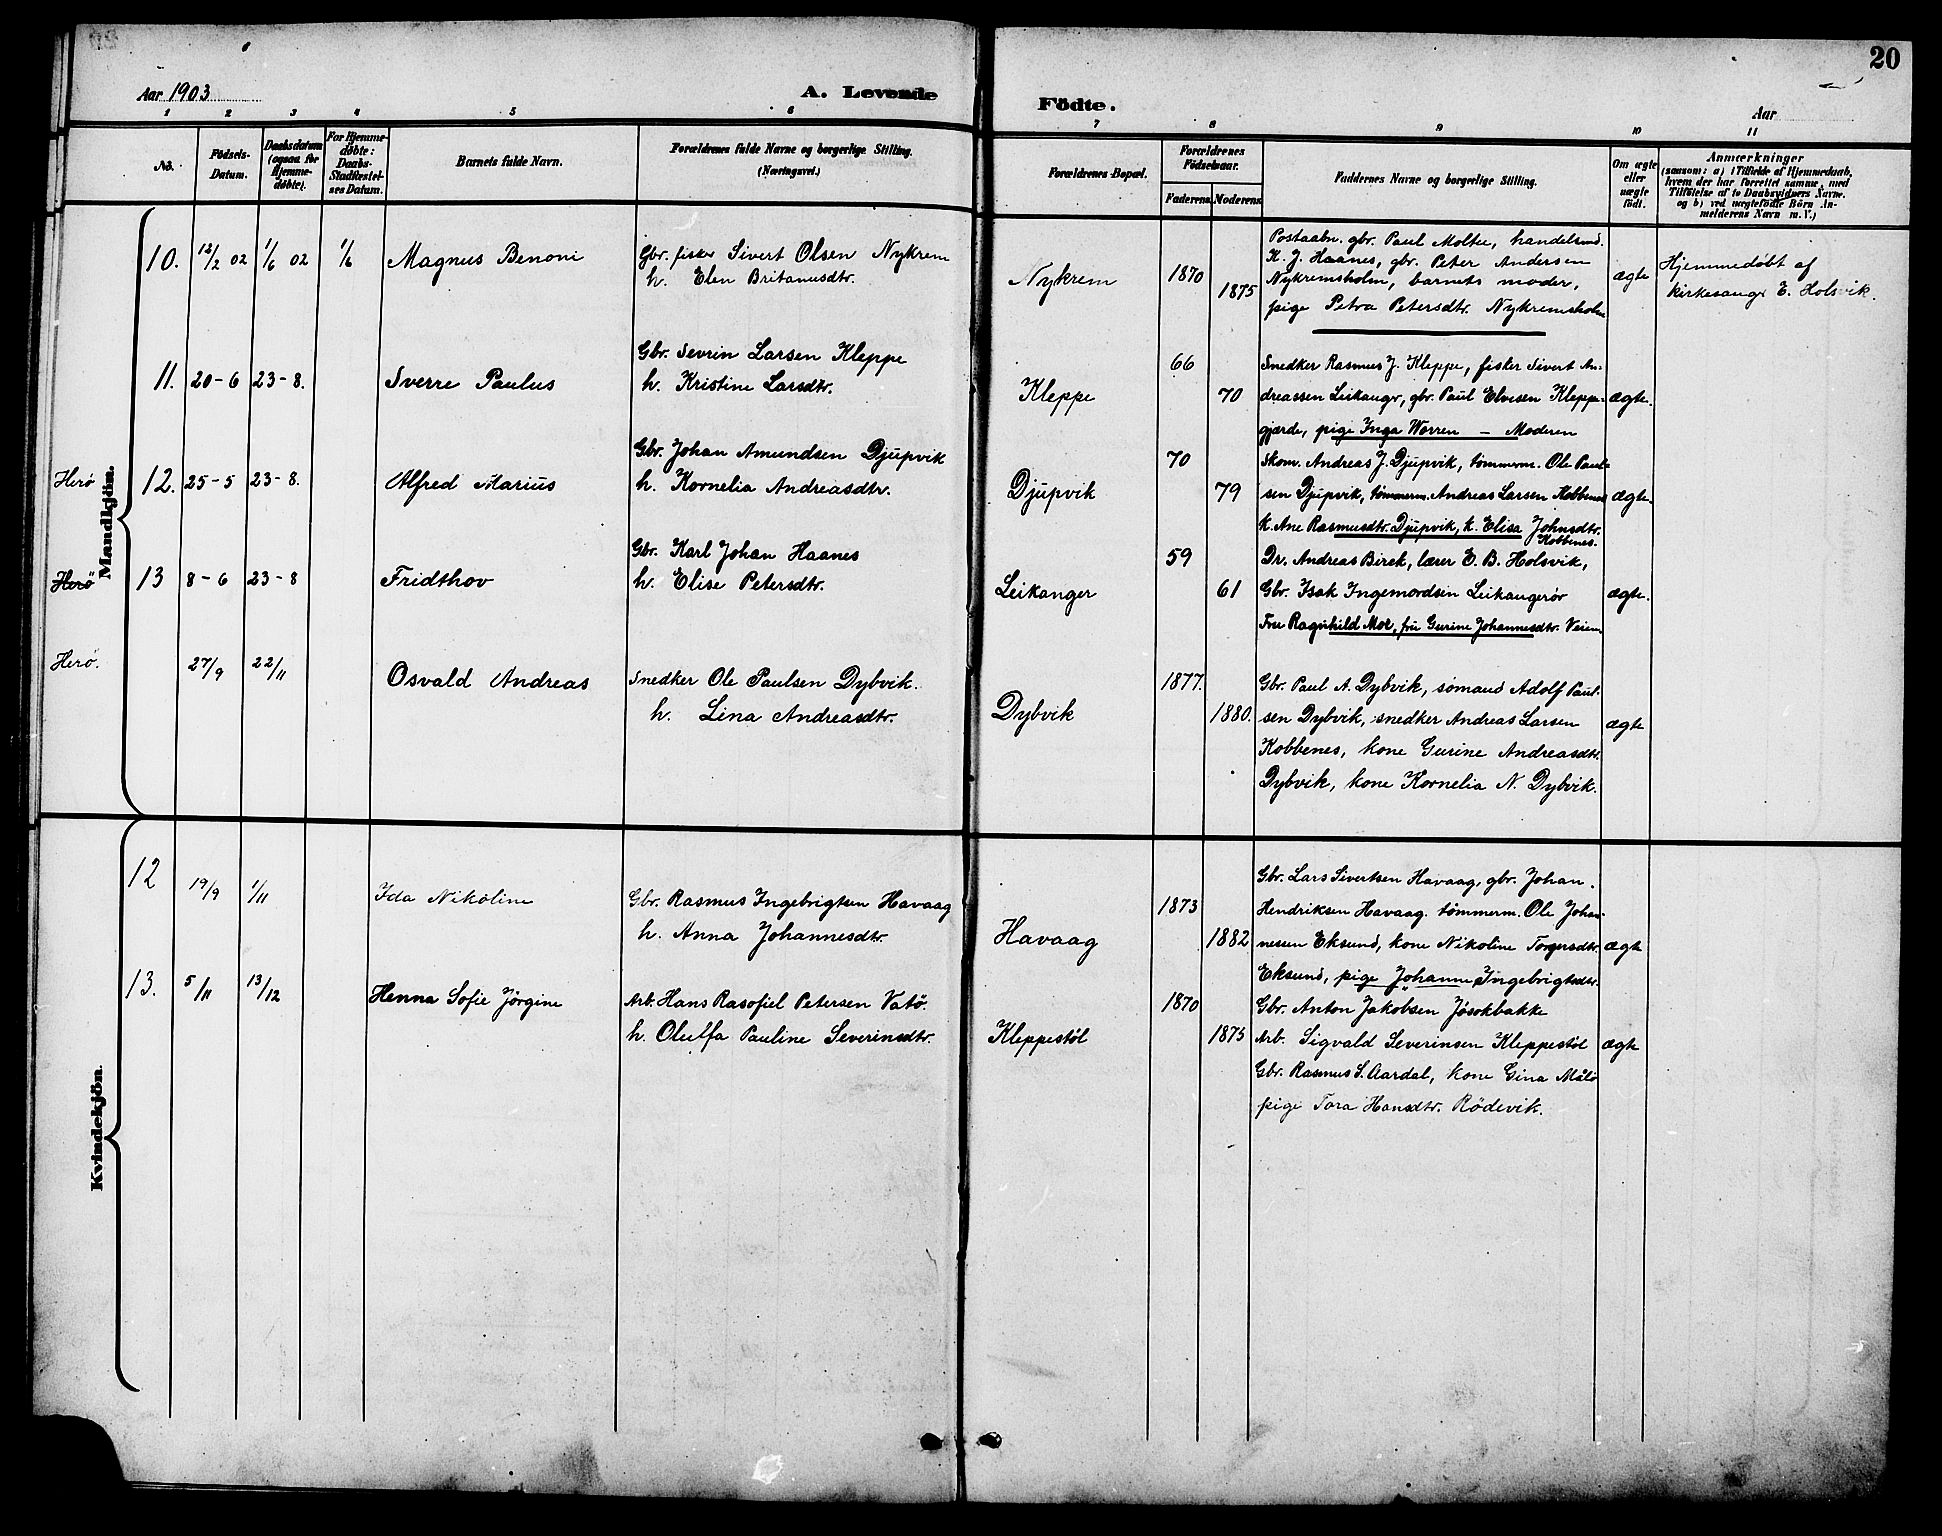 20
Aar 1903
A. Levende
Födte.
Aar
1 2 3 4 5 6 7 8 9 10 11
No. Födsels-Datum. Daabsdatum (ogsaa for Hjemmedöbte). For Hjemmedøbte: Daabs-Stadfæstelses Datum. Barnets fulde Navn. Forældrenes fulde Navne og borgerlige Stilling. (Næringsvei.) Forældrenes Bopæl. Forældrenes Födselsaar. Faderens Moderens Faddernes Navne og borgerlige Stilling. Om ægte eller uægte födt. Anmærkninger (saasom: a) i Tilfælde af Hjemmedaab, hvem der har forrettet samme, med Tilföielse af to Daabsvidners Navne. og b) ved uægtefödte Börn Anmelderens Navn m. V.)
Mandkjön.
10. 12/2 02 1/6 02 1/6 Magnus Benoni
Gbr. fisker Sivert Olsen Nykrem
h. Elen Britanusdtr.
Nykrem 1870 1875
Postaabn. gbr. Paul Molteu, handelsmd.
K. J. Haanes, gbr. Peter Andersen
Nykremsholm, barnets moder,
pige Petra Petersdtr. Nykremsholm
ægte
Hjemmedøbt af
kirkesanger E. Holsvik.
11. 20-6 23-8. Sverre Paulus
Gbr. Sevrin Larsen Kleppe
h. Kristine Larsdtr.
Kleppe 66 70
Snedker Rasmus J. Kleppe, fisker Sivert An-
dreassen Leikanger, gbr. Paul Elvesen Kleppe-
gjærde, pige Inga Worren — Moderen
ægte.
Herö 12. 25-5 23-8. Alfred Marius
Gbr. Johan Amundsen Djupvik
h. Kornelia Andreasdtr.
Djupvik 70 79
Skom. Andreas J. Djupvik, tømmerm. Ole Paul-
sen Djupvik, tømmerm. Andreas Larsen Kobbenes
k. Ane Rasmusdtr. Djupvik, k. Elisa Johnsdtr.
Kobbenes.
ægte.
Herö 13 8-6 23-8 Fridthov
Gbr. Karl Johan Haanes
h. Elise Petersdtr.
Leikanger 59 61
Dr. Andreas Birek, lærer E. B. Holsvik,
Gbr. Isak Ingemordsen Leikangerør
Fru Ragnhild Moe, fru Gurine Johannesdtr. Veien
ægte.
Herö. 27/9 22/11 Osvald Andreas
Snedker Ole Paulsen Dybvik.
h. Lina Andreasdtr.
Dybvik 1877. 1880.
Gbr. Paul A. Dybvik, sømand Adolf Paul-
sen Dybvik, snedker Andreas Larsen
Kobbenes, kone Gurine Andreasdtr.
Dybvik, kone Kornelia N. Dybvik.
ægte
Kvindekjön.
12 19/9 1/11 Ida Nikoline
Gbr. Rasmus Ingebrigtsen Havaag
h. Anna Johannesdtr.
Havaag 1873 1882
Gbr. Lars Sivertsen Havaag, gbr. Johan
Hendriksen Havaag. tømmerm. Ole Johan-
nessen Eksund, kone Nikoline Torgersdtr.
Eksund, pige Johanne Ingebrigtsdtr.
ægte
13. 5/11 13/12 Henna Sofie Jørgine
Arb. Hans Rasofiel Petersen Vatö.
h. Olulfa Pauline Severinsdtr.
Kleppestøl 1870 1875
Gbr. Anton Jakobsen Jøsokbakke
Arb. Sigvald Severinsen Kleppestøl
Gbr. Rasmus S. Aardal, kone Gina Målø
pige Tora Hansdtr. Rödevik.
ægte